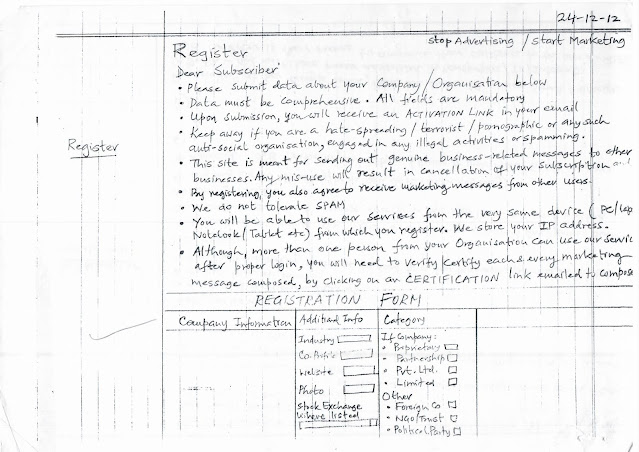 24-12-12
Stop Advertising / Start Marketing
Register
Dear Subscriber
• Please submit data about your Company / Organisation below
• Data must be comprehensive. All fields are mandatory
• Upon submission, you will receive an ACTIVATION LINK in your email
• Keep away if you are a hate-spreading / terrorist / pornographic or any such
anti-social organisation, engaged in any illegal activities or spamming.
Register
• This site is meant for sending out genuine business-related messages to other
businesses. Any mis-use will result in cancellation of your subscription
• By registering, you also agree to receive marketing messages from other users.
• We do not tolerate SPAM
• You will be able to use our services from the very same device (PC/Lap
Notebook/Tablet etc) from which you register. We store your IP address.
• Although, more then one person from your Organisation can use our Service
after proper login, you will need to verify/certify each & every marketing
message composed, by clicking on an CERTIFICATION link emailed to compose
REGISTRATION FORM
Company Information
Additional Info
Category
Industry
Co. Profile
Website
Photo
Stock Exchange
where listed
If Company:
• Proprietary
• Partnership
• Pvt. Ltd.
• Limited
Other
• Foreign Co
• NGO/Trust
• Political Party